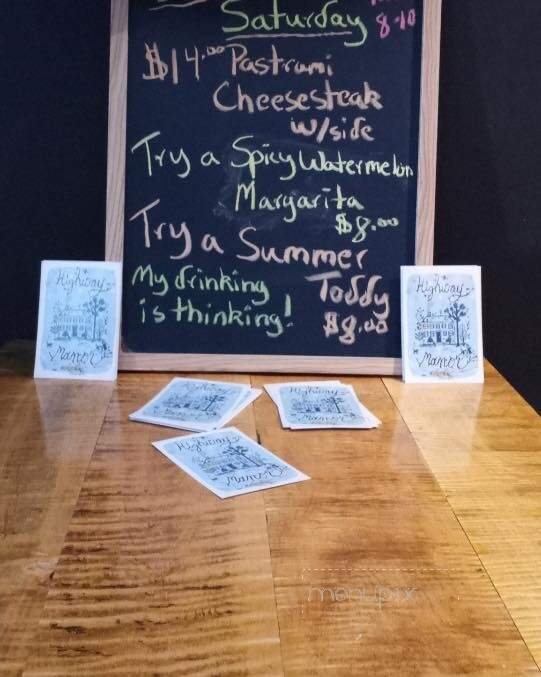 Saturday 8-10
$14.00 Pastrami
Cheesesteak
w/side
Try a Spicy Watermelon
Margarita
$8.00
Try a Summer
Toddy
$8.00
My drinking
is thinking!
Highway
Manor
Highway
Manor
Highway
Manor
Highway
Manor
Highway
Manor
menupix